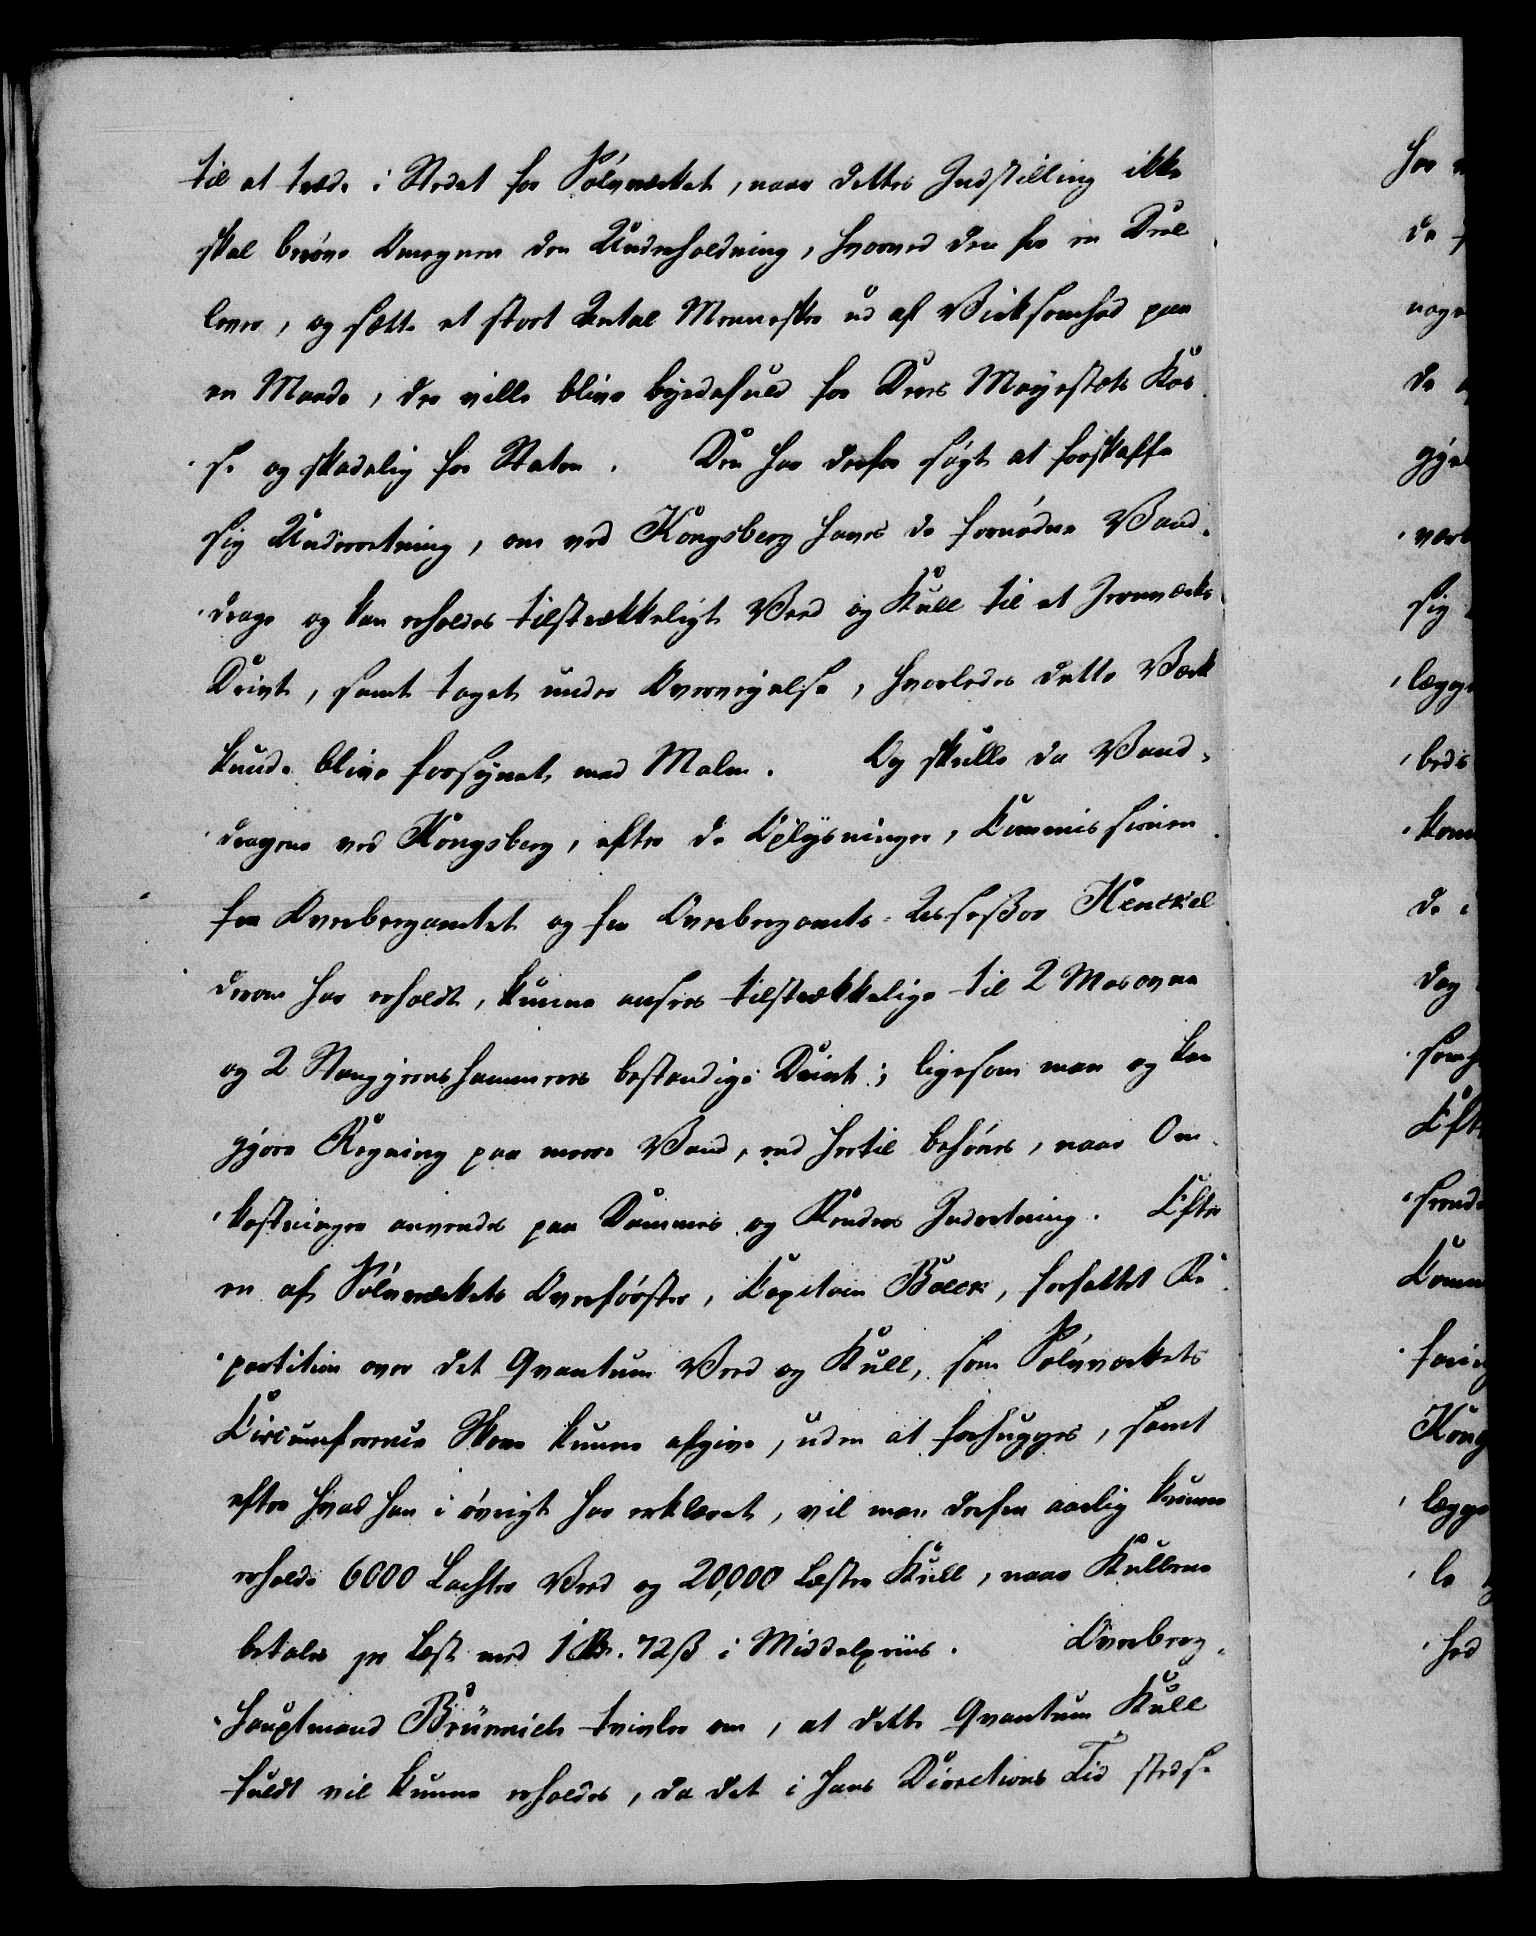 til at træde i Stedet for Sølvværket, naar dettes Indstilling ikke
skal berøve Omegnen den Underholdning, hvorved den for en Deel
lever, og sætte et stort Antal Mennesker ud af Virksomhed paa
en Maade, der ville blive byrdefuld for Deres Majestæts Kas
se og skadelig for Staten. Den har derfor søgt at forskaffe
sig Underretning, om ved Kongsberg haves de fornødne Vand-
drage og kan erholdes tilstrækkeligt Veed og Kull til et Jernværks
Drivt, samt taget under Overveyelse, hvorledes dette Værk
kunde blive forsynet med Malm. Og skulle da Vand-
dragene ved Kongsberg, efter de Oplysninger, Commissionen
fra Overbergamtet og fra Overbergamts-Assessor Henckel
derom har erholdt, kunne ansees tilstrækkelige til 2 Masovne
og 2 Stangjernshammeres bestandige Drivt; ligesom man og kan
gjøre Regning paa meere Vand, end hertil behøves, naar Om-
kostninger anvendes paa Dammes og Renders Indretning. Efter
en af Sølvværkets Overførster, Capitain Boeck, forfattet Re
partition over det Qvantum Veed og Kull, som Sølvværkets
Circumference Skove kunne afgive, uden at forhugges, samt
efter hvad han i øvrigt har erklæret, vil man derfra aarlig kunne
erholde 6000 Lachter Veed og 20,000 Læster Kull, naar Kullene
betales pr Læst med 1 Rdr. 72 ß i Middelpriis. Overberg-
hauptmand Brünnich tvivler om, at dette Qvantum Kull
fuldt vil kunne erholdes, da det i hans Directions Tid stedse